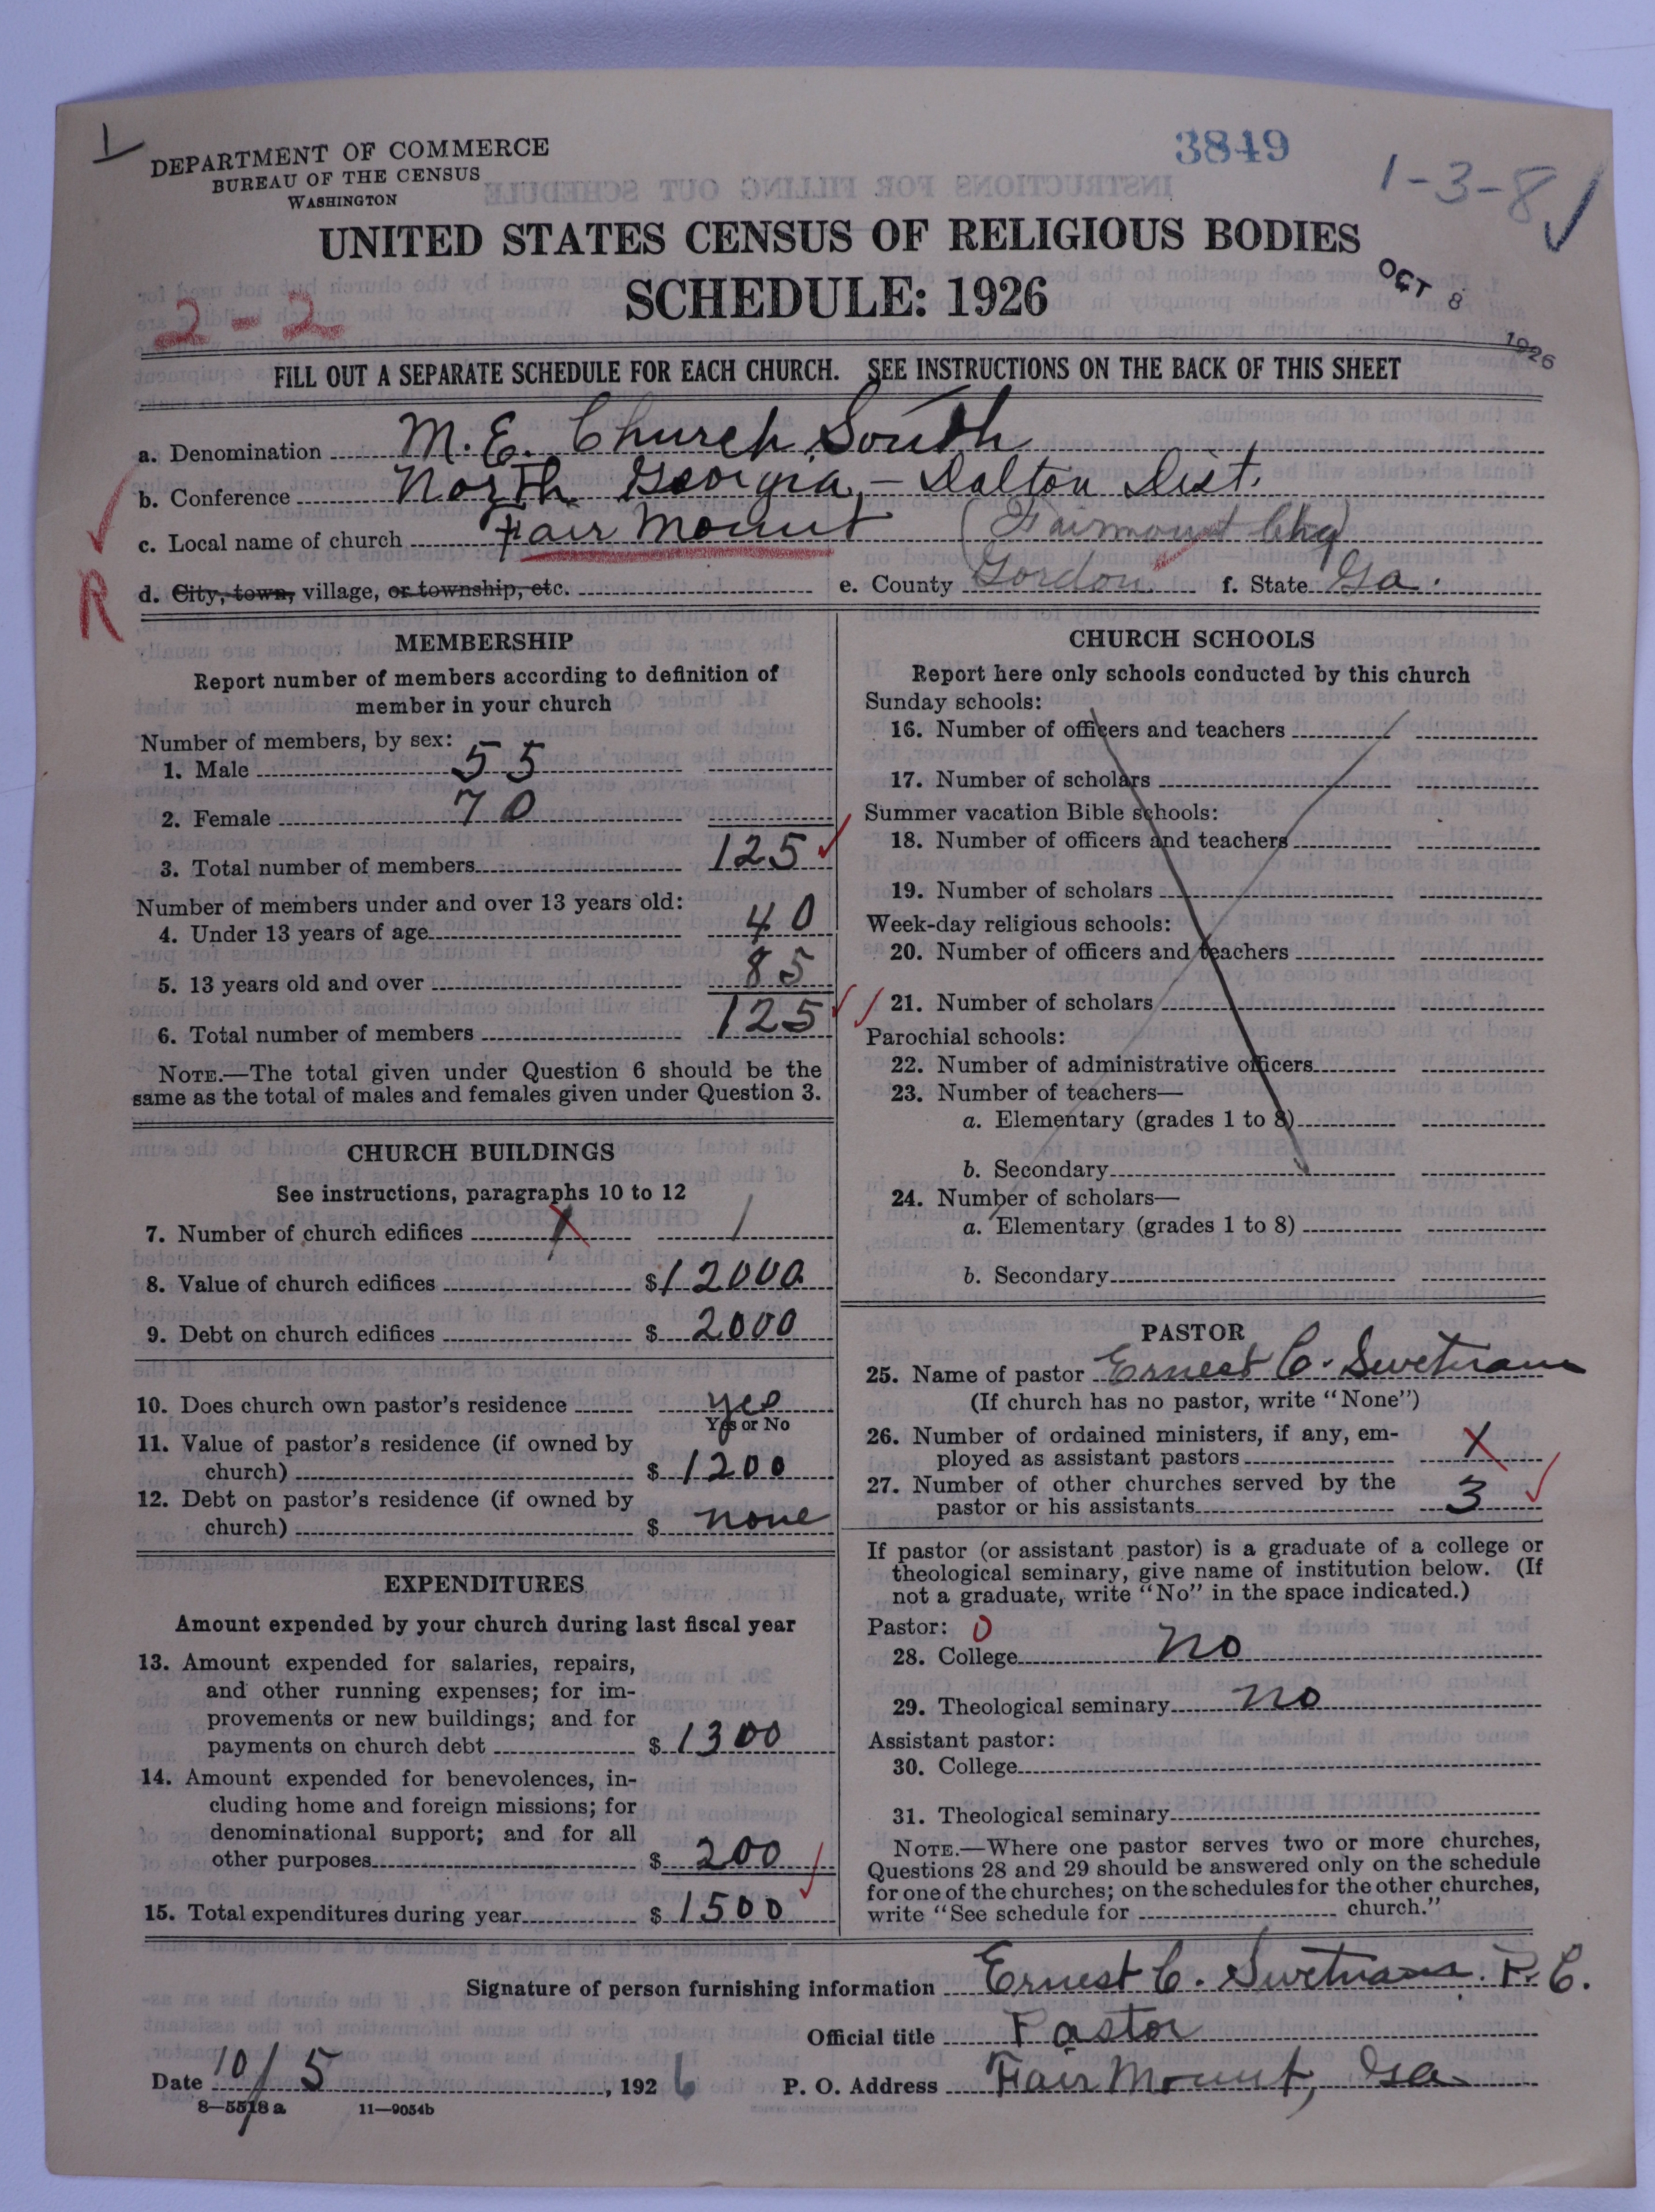 3849
1-3-8
DEPARTMENT OF COMMERCE
BUREAU OF THE CENSUS
WASHINGTON
UNITED STATES CENSUS OF RELIGIOUS BODIES
SCHEDULE: 1926
OCT 8 1926
2-2
FILL OUT A SEPARATE SCHEDULE FOR EACH CHURCH. SEE INSTRUCTIONS ON THE BACK OF THIS SHEET
a. Denomination M.E. Church, South
b. Conference North Georgia, - Dalton Dist.
c. Local name of church Fair Mount (Fairmount Chg)
R
d. City, town, village, or township, etc. e. County Gordon f. State Ga.
MEMBERSHIP
Report number of members according to definition of
member in your church
Number of members, by sex:
1. Male 55
2. Female 70
3. Total number of members 125
Number of members under and over 13 years old:
4. Under 13 years of age 40
5. 13 years old and over 85
6. Total number of members 125
NOTE.—The total given under Question 6 should be the
same as the total of males and females given under Question 3.
CHURCH BUILDINGS
See instructions, paragraphs 10 to 12
7. Number of church edifices 1 1
8. Value of church edifices $12000
9. Debt on church edifices $ 2000
10. Does church own pastor's residence yes
Yes or No
11. Value of pastor's residence (if owned by
church) $ 1200
12. Debt on pastor's residence (if owned by
church) $ none
EXPENDITURES
Amount expended by your church during last fiscal year
13. Amount expended for salaries, repairs,
and other running expenses; for im-
provements or new buildings; and for
payments on church debt $ 1300
14. Amount expended for benevolences, in-
cluding home and foreign missions; for
denominational support; and for all
other purposes $ 200
15. Total expenditures during year $ 1500
CHURCH SCHOOLS
Report here only schools conducted by this church
Sunday schools:
16. Number of officers and teachers
17. Number of scholars
Summer vacation Bible schools:
18. Number of officers and teachers
19. Number of scholars
Week-day religious schools:
20. Number of officers and teachers
21. Number of scholars
Parochial schools:
22. Number of administrative officers
23. Number of teachers—
a. Elementary (grades 1 to 8)
b. Secondary
24. Number of scholars—
a. Elementary (grades 1 to 8)
b. Secondary
PASTOR
25. Name of pastor Ernest C. Swetnam
(If church has no pastor, write "None")
26. Number of ordained ministers, if any, em-
ployed as assistant pastors
27. Number of other churches served by the
pastor or his assistants 3
If pastor (or assistant pastor) is a graduate of a college or
theological seminary, give name of institution below. (If
not a graduate, write "No" in the space indicated.)
Pastor: 0
28. College no
29. Theological seminary no
Assistant pastor:
30. College
31. Theological seminary
NOTE.—Where one pastor serves two or more churches,
Questions 28 and 29 should be answered only on the schedule
for one of the churches; on the schedules for the other churches,
write "See schedule for church."
Signature of person furnishing information Ernest C. Swetnam. P.C.
Official title Pastor
Date 10/5, 1926 P. O. Address Fair Mount, Ga.
8—5518 a 11—9054b